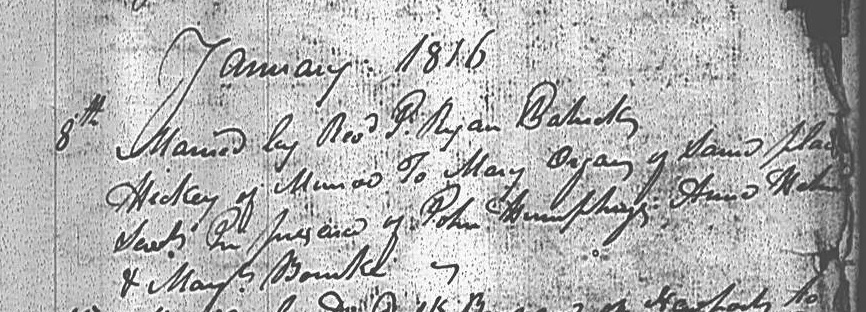 January 1816
8th Married by Revd P. Ryan Patrick
Hickey of Munroe To Mary Organ of Same place
In presence of John Humphrys Anne
& Margt Bourke
by